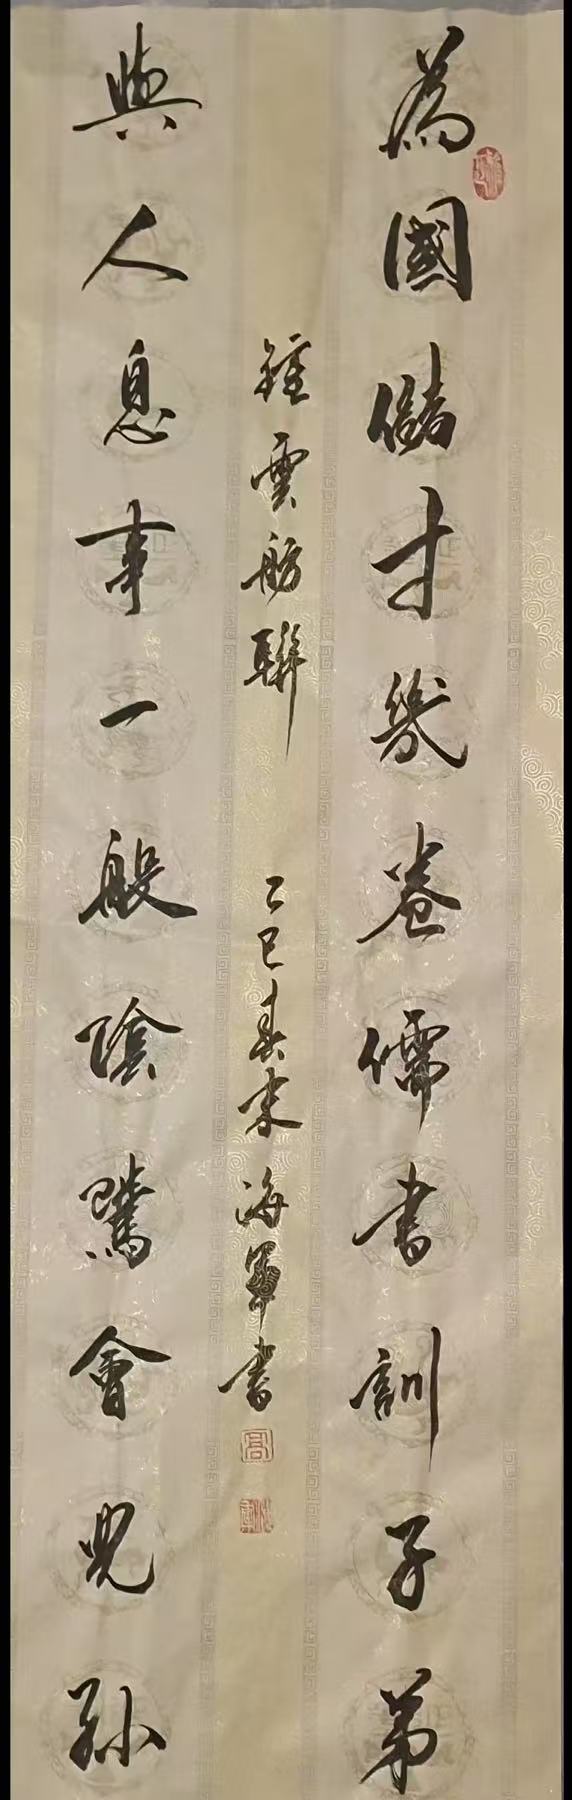 為國儲才幾卷儒書訓子弟
鍾雲舫聯 乙巳春末 海書
高
與人息事一般陰騭會兒孫